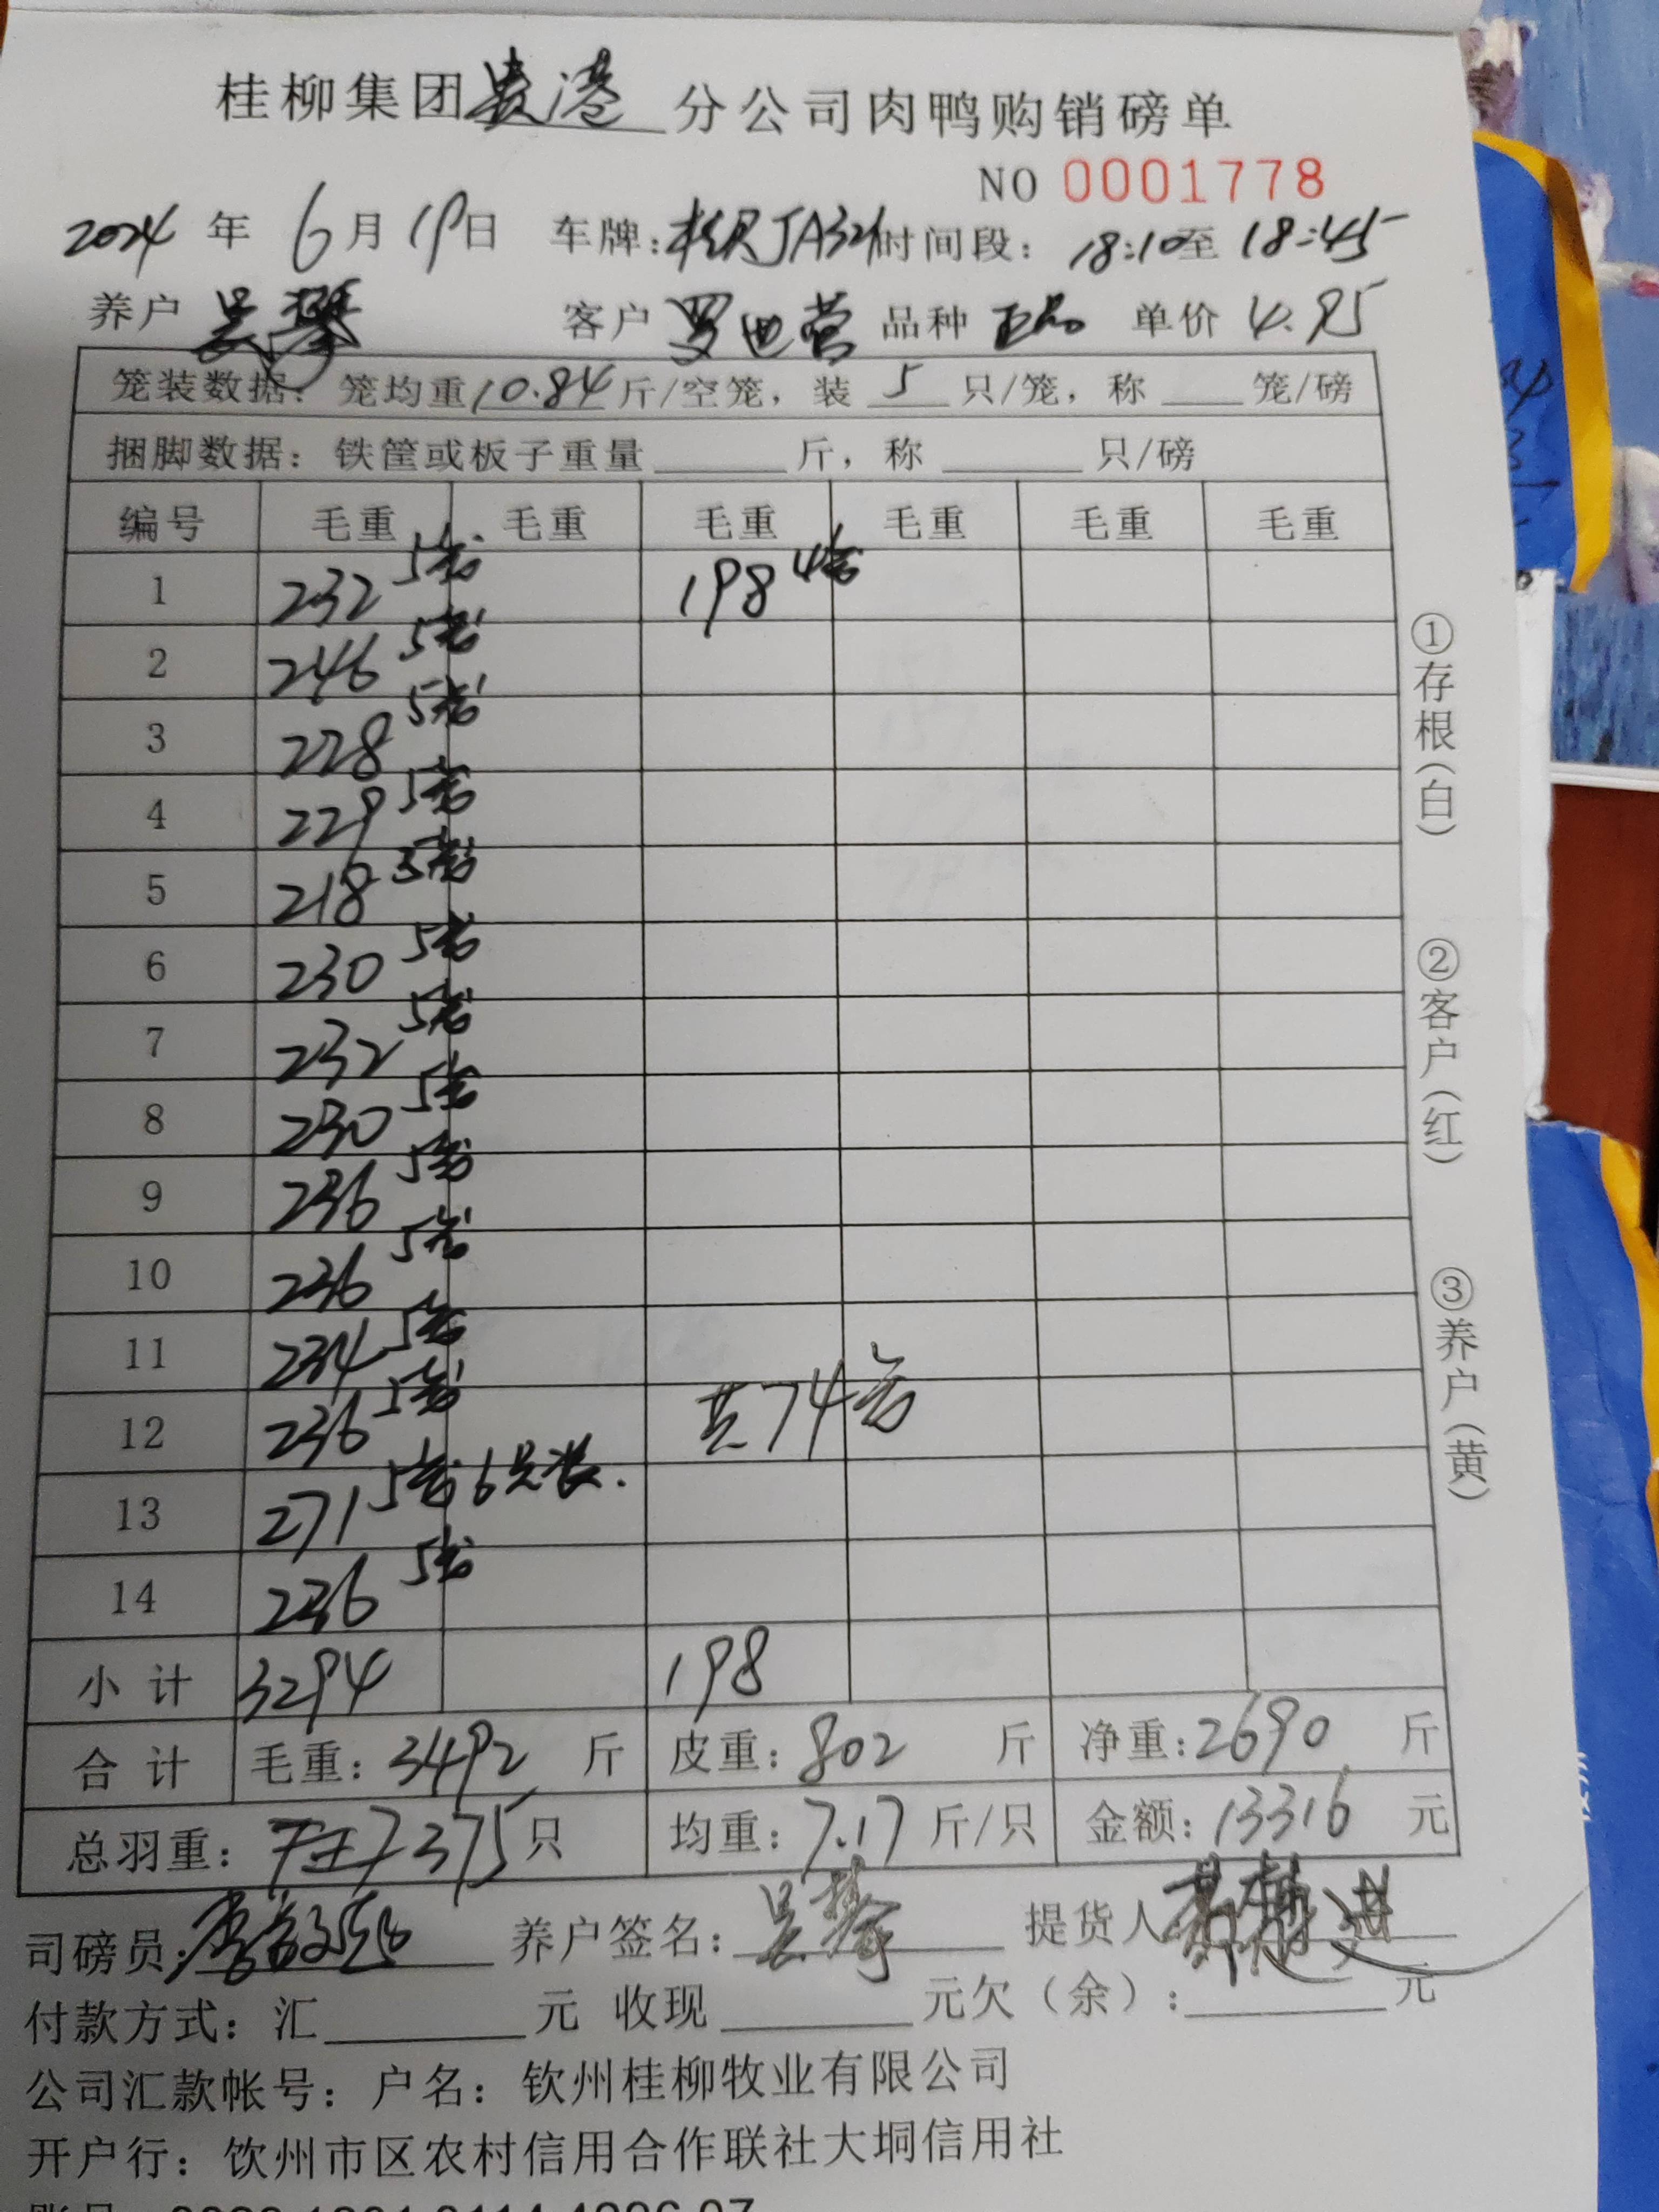 桂柳集团贵港分公司肉鸭购销磅单
NO 0001778
2024年6月19日 车牌: JA321 时间段: 18:10至18:45
养户 吴琴 客户 罗世营 品种 正品 单价 4.95
笼装数据: 笼均重10.84斤/空笼, 装5只/笼, 称____笼/磅
捆脚数据: 铁筐或板子重量______斤, 称______只/磅
编号 毛重 毛重 毛重 毛重 毛重 毛重
1 232 5笼 198 4笼
2 246 5笼
3 228 5笼
4 229 5笼
5 218 5笼
6 230 5笼
7 232 5笼
8 230 5笼
9 236 5笼
10 236 5笼
11 234 5笼
12 236 5笼 共74笼
13 271 5笼 6只装.
14 236 5笼
小计 3294 198
合计 毛重: 3492 斤 皮重: 802 斤 净重: 2690 斤
总羽重: 375只 均重: 7.17斤/只 金额: 13316 元
司磅员: 养户签名: 吴琴 提货人
付款方式: 汇______元 收现______元欠（余）:______元
公司汇款帐号: 户名: 钦州桂柳牧业有限公司
开户行: 饮州市区农村信用合作联社大垌信用社
①存根（白）
②客户（红）
③养户（黄）